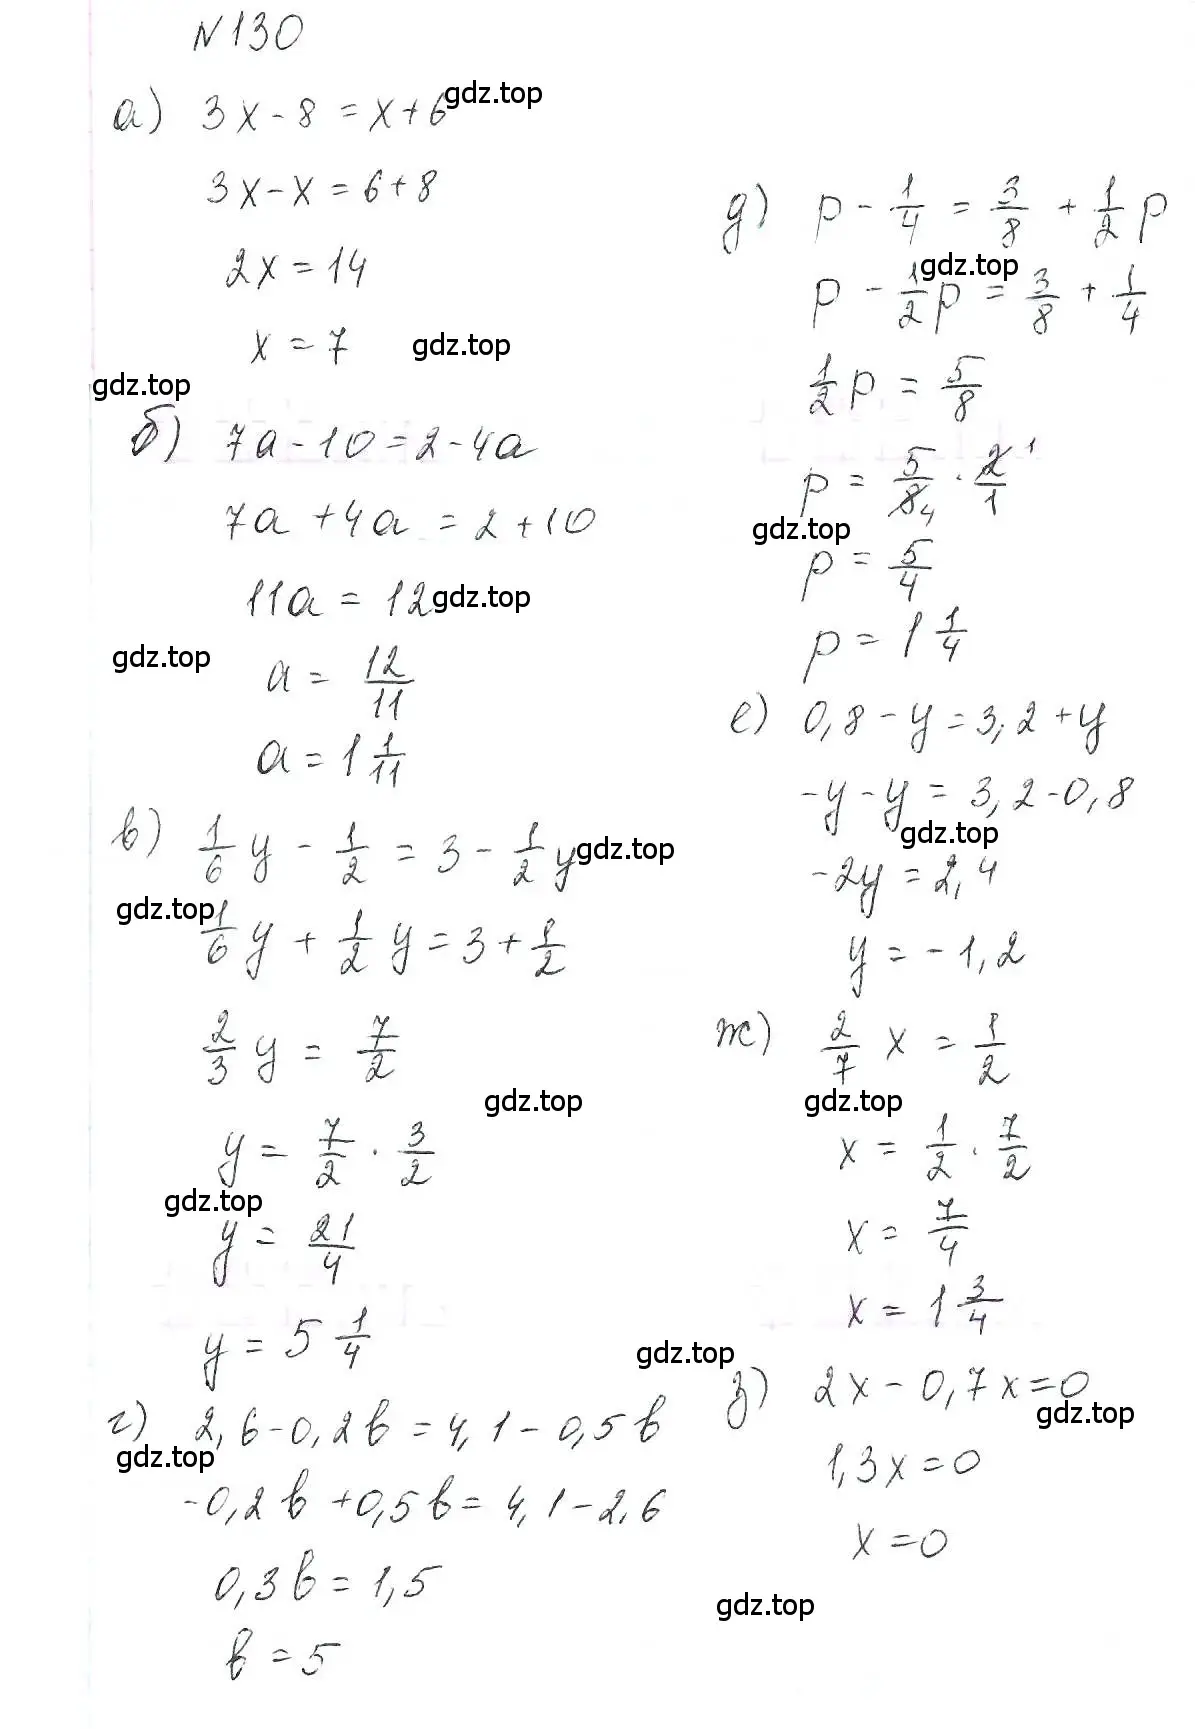 N 130
а) 3x - 8 = x + 6
gdz.top
3x - x = 6 + 8
2x = 14
x = 7
gdz.top
gdz.top
б) 7a - 10 = 2 - 4a
7a + 4a = 2 + 10
11a = 12
gdz.top
gdz.top
a = 12/11
a = 1 1/11
в) 1/6 y - 1/2 = 3 - 1/2 y
gdz.top
gdz.top
1/6 y + 1/2 y = 3 + 1/2
2/3 y = 7/2
gdz.top
y = 7/2 · 3/2
gdz.top
y = 21/4
y = 5 1/4
г) 2,6 - 0,2b = 4,1 - 0,5b
gdz.top
-0,2b + 0,5b = 4,1 - 2,6
0,3b = 1,5
b = 5
д) p - 1/4 = 3/8 + 1/2 p
gdz.top
p - 1/2 p = 3/8 + 1/4
1/2 p = 5/8
p = 5/8 4 · 2/1 1
gdz.top
p = 5/4
p = 1 1/4
е) 0,8 - y = 3,2 + y
-y - y = 3,2 - 0,8
gdz.top
-2y = 2,4
y = -1,2
ж) 2/7 x = 1/2
gdz.top
x = 1/2 · 7/2
x = 7/4
x = 1 3/4
gdz.top
з) 2x - 0,7x = 0
gdz.top
1,3x = 0
x = 0
gdz.top